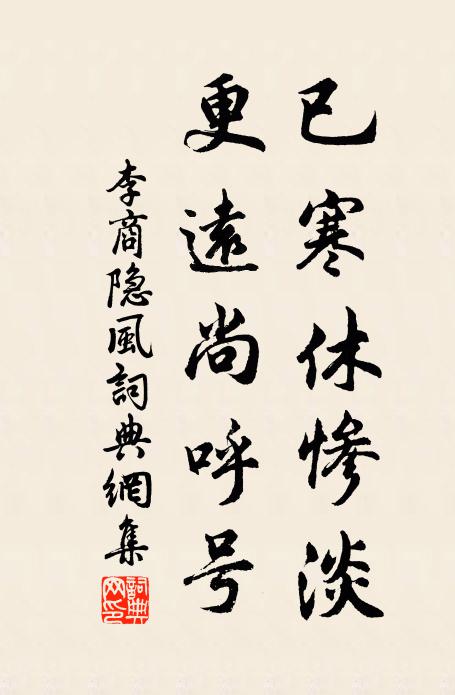 已寒休惨淡
更遠尚呼号
李商隐風詞典網集
詞典
网印